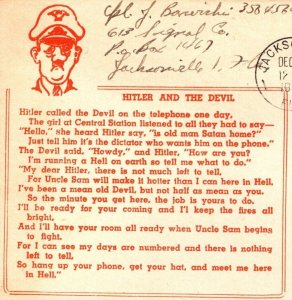 Cpl. J.
613 Signal Co.
P.O. Box 1067
Jacksonville 1,
JACKSO
DEC
12
HITLER AND THE DEVIL
Hitler called the Devil on the telephone one day,
The girl at Central Station listened to all they had to say—
"Hello," she heard Hitler say, "is old man Satan home?"
Just tell him it's the dictator who wants him on the phone."
The Devil said, "Howdy," and Hitler, "How are you?
I'm running a Hell on earth so tell me what to do."
"My dear Hitler, there is not much left to tell,
For Uncle Sam will make it hotter than I can here in Hell.
I've been a mean old Devil, but not half as mean as you.
So the minute you get here, the job is yours to do.
I'll be ready for your coming and I'll keep the fires all
bright,
And I'll have your room all ready when Uncle Sam begins
to fight.
For I can see my days are numbered and there is nothing
left to tell,
So hang up your phone, get your hat, and meet me here
in Hell."